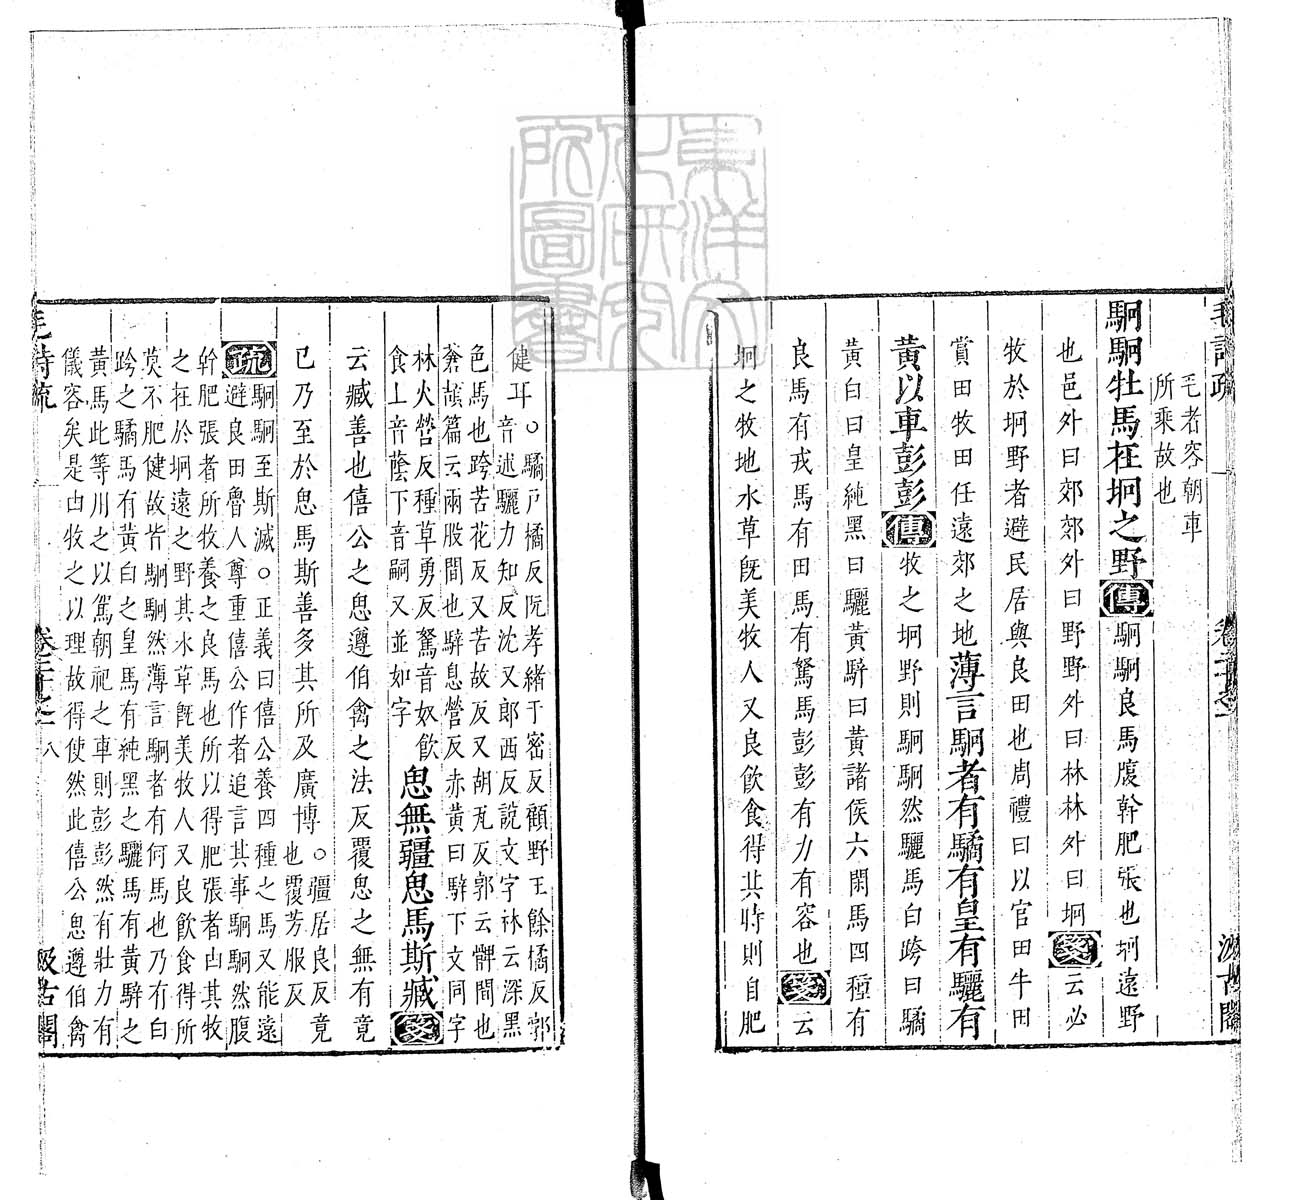 毛詩疏
卷二十之一
汲古閣
毛者容朝車
所乘故也
駉駉牡馬在坰之野傳駉駉良馬腹幹肥張也坰遠野
也邑外曰郊郊外曰野野外曰林林外曰坰箋云必
牧於坰野者避民居與良田也周禮曰以官田牛田
賞田牧田任遠郊之地薄言駉者有驈有皇有驪有
黃以車彭彭傳牧之坰野則駉駉然驪馬白跨曰驈
黃白曰皇純黑曰驪黃騂曰黃諸侯六閑馬四種有
良馬有戎馬有田馬有駑馬彭彭有力有容也箋云
坰之牧地水草旣美牧人又良飮食得其時則自肥
健耳○驈戸橘反阮孝緒于密反顧野王餘橘反郭
音述驪力知反沈又郎西反說文字林云深黑
色馬也跨苦花反又苦故反又胡瓦反郭云髀間也
蒼頡篇云兩股間也騂息營反赤黃曰騂下文同字
林火營反種草勇反駑音奴飮
食上音蔭下音嗣又並如字
思無疆思馬斯臧箋
云臧善也僖公之思遵伯禽之法反覆思之無有竟
已乃至於思馬斯善多其所及廣博○疆居良反竟
也覆芳服反
疏駉駉至斯臧○正義曰僖公養四種之馬又能遠
避良田魯人尊重僖公作者追言其事駉駉然腹
幹肥張者所牧養之良馬也所以得肥張者由其牧
之在於坰遠之野其水草旣美牧人又良飮食得所
莫不肥健故皆駉駉然薄言駉者有何馬也乃有白
跨之驈馬有黃白之皇馬有純黑之驪馬有黃騂之
黃馬此等用之以駕朝祀之車則彭彭然有壯力有
儀容矣是由牧之以理故得使然此僖公思遵伯禽
毛詩疏
卷二十之一
八
汲古閣
東洋文化研究所圖書